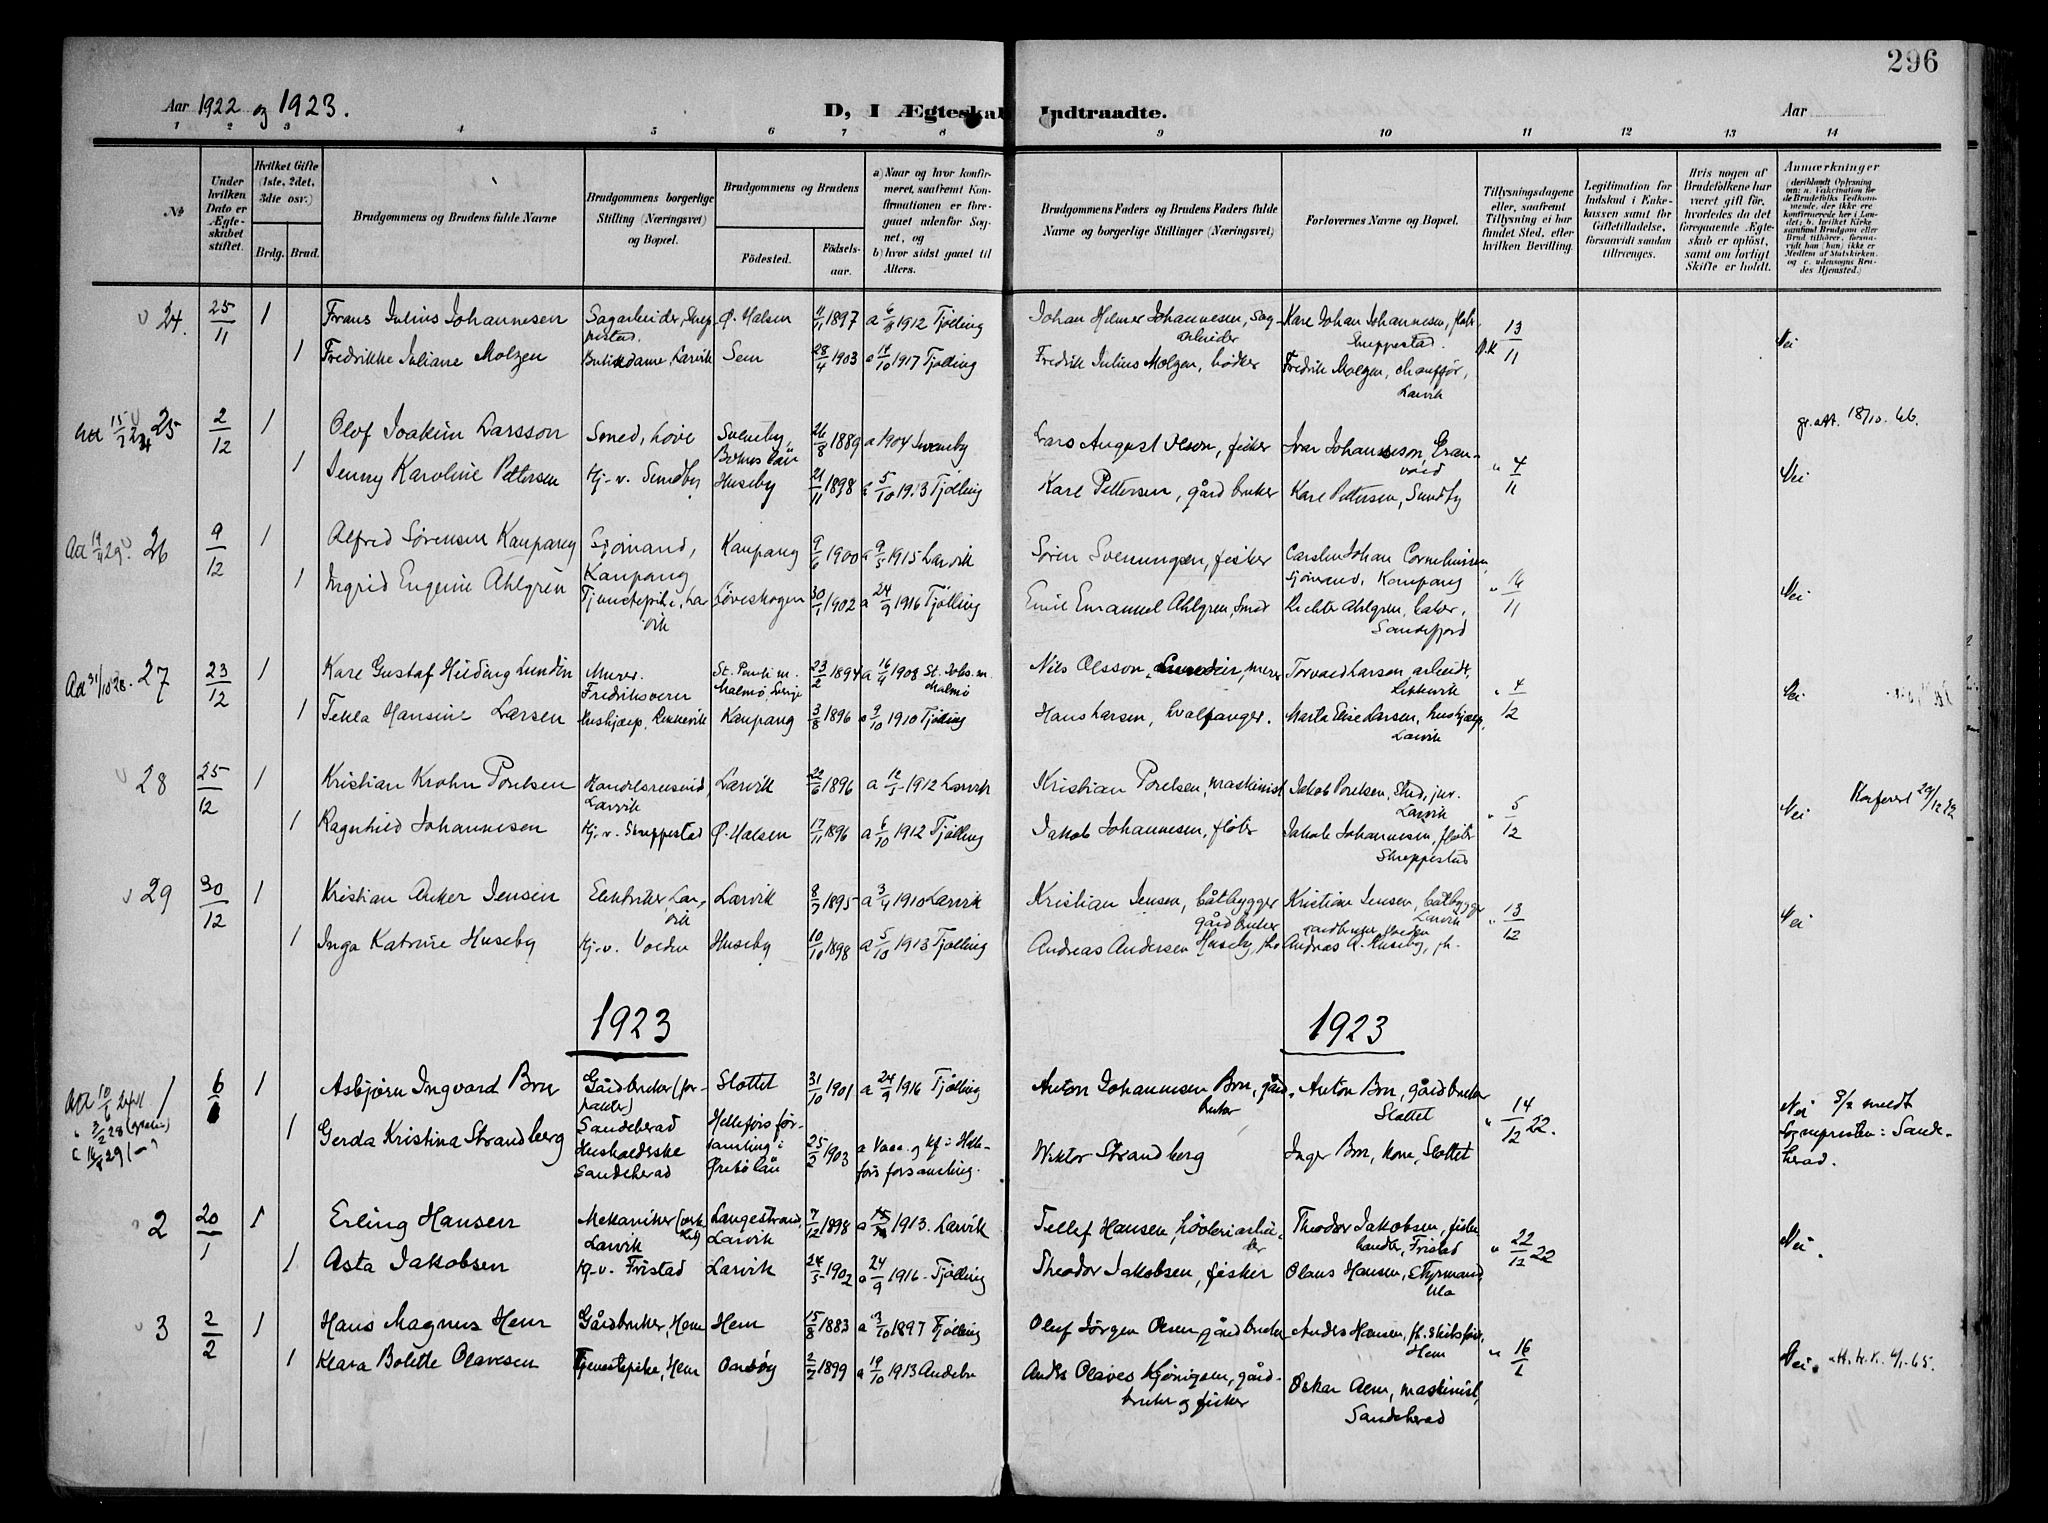 296
Aar 1922 og 1923.
D, I Ægteskab Indtraadte.
Aar
1 2 3 4 5 6 7 8 9 10 11 12 13 14
№
Under hvilken Dato er Ægteskabet stiftet.
Hvilket Gifte (1ste, 2det, 3die osv.)
Brdg. Brud.
Brudgommens og Brudens fulde Navne
Brudgommens borgerlige Stilling (Næringsvei) og Bopæl.
Brudgommens og Brudens
Födested.
Födselsaar.
a) Naar og hvor konfirmeret, saafremt Konfirmationen er foregaaet udenfor Sognet, og
b) hvor sidst gaaet til Alters.
Brudgommens Faders og Brudens Faders fulde Navne og borgerlige Stillinger (Næringsvei)
Forlovernes Navne og Bopæl.
Tillysningsdagene eller, saafremt Tillysning ei har fundet Sted, efter hvilken Bevilling.
Legitimation for Indskud i Enkekassen samt for Giftetilladelse, forsaavidt saadan tiltrænges.
Hvis nogen af Brudefolkene har været gift før, hvorledes da det foregaaende Ægteskab er oplöst, samt om lovligt Skifte er holdt.
Anmærkninger
(deriblandt Oplysning om: a. Vakcination for de Brudefolks Vedkommende, der ikke ere konfirmerede her i Landet; b. hvilket Kirkesamfund Brudgom eller Brud tilhører, forsaavidt han (hun) ikke er Medlem af Statskirken, og c. udensogns Brudes Hjemsted.)
24. 25/11 1 Frans Julius Johannesen Sagarbeider, Skreppestad. Ø. Halsen 11/11 1897 a 6/10 1912 Tjølling Johan Hilmer Johannesen, sagarbeider Karl Johan Johannesen, Skreppestad. 13/11 Nei
1 Fredrikke Juliane Molzen Butikdame, Larvik Sem 28/4 1903 a 14/10 1917 Tjølling Fredrik Julius Molzen, bødker Fredrik Molzen, chauffør, Larvik
25 2/12 1 Olof Joakim Larsson Smed, Løve Svenneby, Bohus län 26/8 1889 a 1904 Svenneby Lars August Olson, fisker Ivar Johannesson, Granvold 4/11 Nei 18/10. 66.
1 Jenny Karoline Pettersen Hj. v. Sundby Huseby 21/11 1898 a 5/10 1913 Tjølling Karl Pettersen, gårdbruker Karl Pettersen, Sundby
26 9/12 1 Alfred Sørensen Kaupang Sjømand, Kaupang Kaupang 9/6 1900 a 9/5 1915 Larvik Søren Svenningsen, fisker Carsten Johan Corneliussen, sjømand, Kaupang 16/11 Nei
1 Ingrid Eugenie Ahlgren Tjenestepike, Larvik Løveskogen 30/1 1902 a 24/9 1916 Tjølling Emil Emanuel Ahlgren, smed Ahlgren, Sandefjord
27 23/12 1 Karl Gustaf Hilding Lundin Murer. Fredriksvern St. Pauli m. Malmø, Sverige 23/2 1894 a 16/4 1908 St. Johs. m. Malmø Nils Olsson Lundin, murer Torvald Larsen, arbeid, 4/12 Nei
1 Tekla Hansine Larsen Hushjælp, Kaupang 3/8 1896 a 9/10 1910 Tjølling Hans Larsen, hvalfanger. Marta Elise Larsen, hushjælp, Larvik
28 25/12 1 Kristian Krohn Poulsen Handelsreisende, Larvik Larvik 22/6 1896 a 12/5 1912 Larvik Kristian Poulsen, maskinist Jakob Poulsen, Stud. jur. Larvik 5/12 Nei 29/12 22
1 Ragnhild Johannesen Hj. v. Skreppestad Ø. Halsen 17/11 1896 a 6/10 1912 Tjølling Jakob Johannesen, fløter Jakob Johannesen, fløter Skreppestad
29 30/12 1 Kristian Anker Jensen Elektriker, Larvik Larvik 8/7 1895 a 3/4 1910 Larvik Kristian Jensen, båtbygger Kristian Jensen, båtbygger Larvik 13/12 Nei
1 Inga Katrine Huseby Hj. v. Volden Huseby 10/10 1898 a 5/10 1913 Tjølling Andreas Andersen Huseby, gårdbruker Andreas A. Huseby, gårdbruker
1923 1923
1 6/1 1 Asbjørn Ingvard Bru Gårdbruker (forpakter) Sandeherad Slottet 31/10 1901 a 24/9 1916 Tjølling Anton Johannesen Bru, gårdbruker Anton Bru, gårdbruker Slottet 14/12 22. Nei 3/2 meldt Sognepresten i Sandeherad.
1 Gerda Kristina Strandberg Husholderske Sandeherad Hellefors församling i Örebö län 25/2 1903 a Vacc. og kf. i Hellefors forsamling. Wiktor Strandberg Inger Bru, kone, Slottet
2 20/1 1 Erling Hansen Mekaniker Larvik Langestrand, Larvik 7/12 1898 a 1913. Larvik Tellef Hansen, høvleriarbeider Theodor Jakobsen, fiskehandler, Fristad 22/12 22 Nei.
1 Asta Jakobsen Hj. v. Fristad Larvik 24/5 1902 a 24/9 1916. Tjølling Theodor Jakobsen, fisker Olaus Hansen, styrmand, Ula
3 2/2 1 Hans Magnus Hem Gårdbruker, Hem Hem 15/8 1883 a 3/10 1897 Tjølling Oluf Jørgen Olsen, gårdbruker Anders Hansen, fh. skibsfører, Hem 16/1 Nei. 4/1-65.
1 Klara Bolette Olavesen Tjenestepike, Hem 2/2 1899 a 19/10 1913 Andebu Anders Olaves gårdbruker og fisker Oskar maskinist, Sandeherad